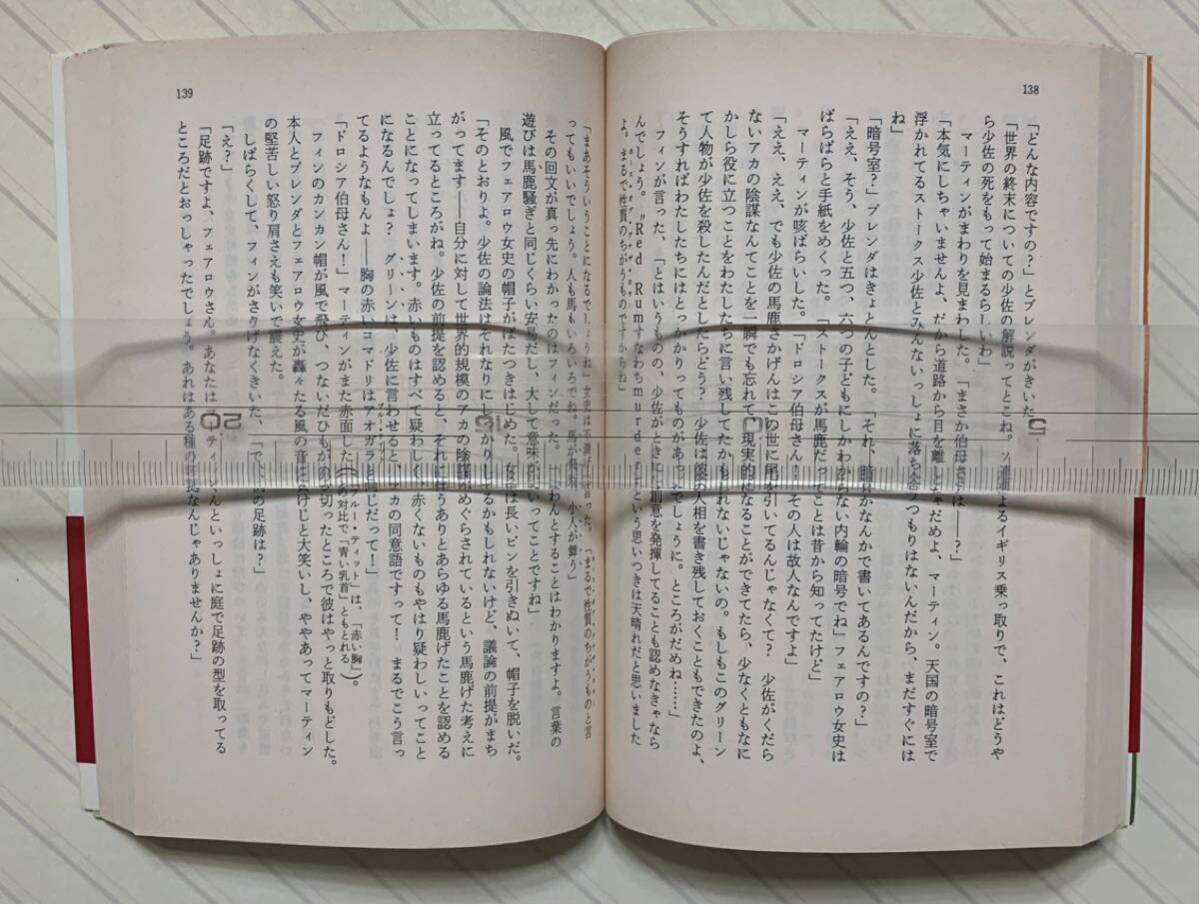 138
「どんな内容ですの?」とブレンダがきいた。
「世界の終末についての少佐の解説ってとこね。ソ連邦によるイギリス乗っ取りで、これはどうや
ら少佐の死をもって始まるらしいわ」
マーティンがまわりを見まわした。「まさか伯母さまは――!?」
「本気にしちゃいませんよ、だから道路から目を離しちゃだめよ、マーティン。天国の暗号室で
浮かれてるストークス少佐とみんないっしょに落ち合うつもりはないんだから、まだすぐには
ね」
「暗号室?」ブレンダはきょとんとした。「それ、暗号かなんかで書いてあるんですの?」
「ええ、そう、少佐と五つ、六つの子どもにしかわからない内輪の暗号でね」フェアロウ女史は
ばらばらと手紙をめくった。「ストークスが馬鹿だってことは昔から知ってたけど」
マーティンが咳ばらいした。「ドロシア伯母さん!その人は故人なんですよ」
「ええ、ええ、でも少佐の馬鹿さかげんはこの世に尾を引いてるんじゃなくて? 少佐がくだら
ないアカの陰謀なんてことを一瞬でも忘れて、現実的になることができてたら、少なくともなに
かしら役に立つことをわたしたちに言い残してたかもしれないじゃないの。もしもこのグリーン
て人物が少佐を殺したんだとしたらどう? 少佐は彼の人相を書き残しておくこともできたのよ、
そうすればわたしたちにはとっかかりってものがあったでしょうに。ところがだめね……」
フィンが言った、「とはいうものの、少佐がときに創意を発揮してることも認めなきゃなら
んでしょう。〝Red Rumすなわちmurder〟という思いつきは天晴れだと思いました
よ。まるで性質のちがうものですからね」
139
「まあそういうことになるでしょうね」女史は不満げに言った。「まるで性質のちがうものと言
ってもいいでしょう。人も馬もいろいろでね。馬が
その回文が真っ先にわかったのはフィンだった。「
わんとすることはわかりますよ。言葉の
遊びは馬鹿騒ぎと同じくらい安易だし、大して意味がないってことですね」
風でフェアロウ女史の帽子がばたつきはじめた。女史は長いピンを引きぬいて、帽子を脱いだ。
「そのとおりよ。少佐の論法はそれなりにしっかりしてるかもしれないけど、議論の前提がまち
がってます――自分に対して世界的規模のアカの陰謀がめぐらされているという馬鹿げた考えに
立ってるところがね。少佐の前提を認めると、それに伴うありとあらゆる馬鹿げたことを認める
ことになってしまいます。赤いものはすべて疑わしく、赤くないものもやはり疑わしいってこと
になるんでしょ? グリーンは、少佐に言わせると、アカの同意語ですって! まるでこう言っ
てるようなもんよ――胸の赤いコマドリはアオガラと同じだって!」
「ドロシア伯母さん!」マーティンがまた赤面した(ブルー・ティットは、「赤い胸」との対比で「青い乳首」ともとれる)。
フィンのカンカン帽が風で飛び、つないだひもが
切ったところで彼はやっと取りもどした。
本人とブレンダとフェアロウ女史が轟々たる風の音に負けじと大笑いし、ややあってマーティン
の堅苦しい怒り肩さえも笑いで震えた。
しばらくして、フィンがさりげなくきいた、「で、
の足跡は?」
「え?」
「足跡ですよ、フェアロウさん。あなたは
んといっしょに庭で足跡の型を取ってる
ところだとおっしゃったでしょう。あれはある種の
なんじゃありませんか?」
5
15
20